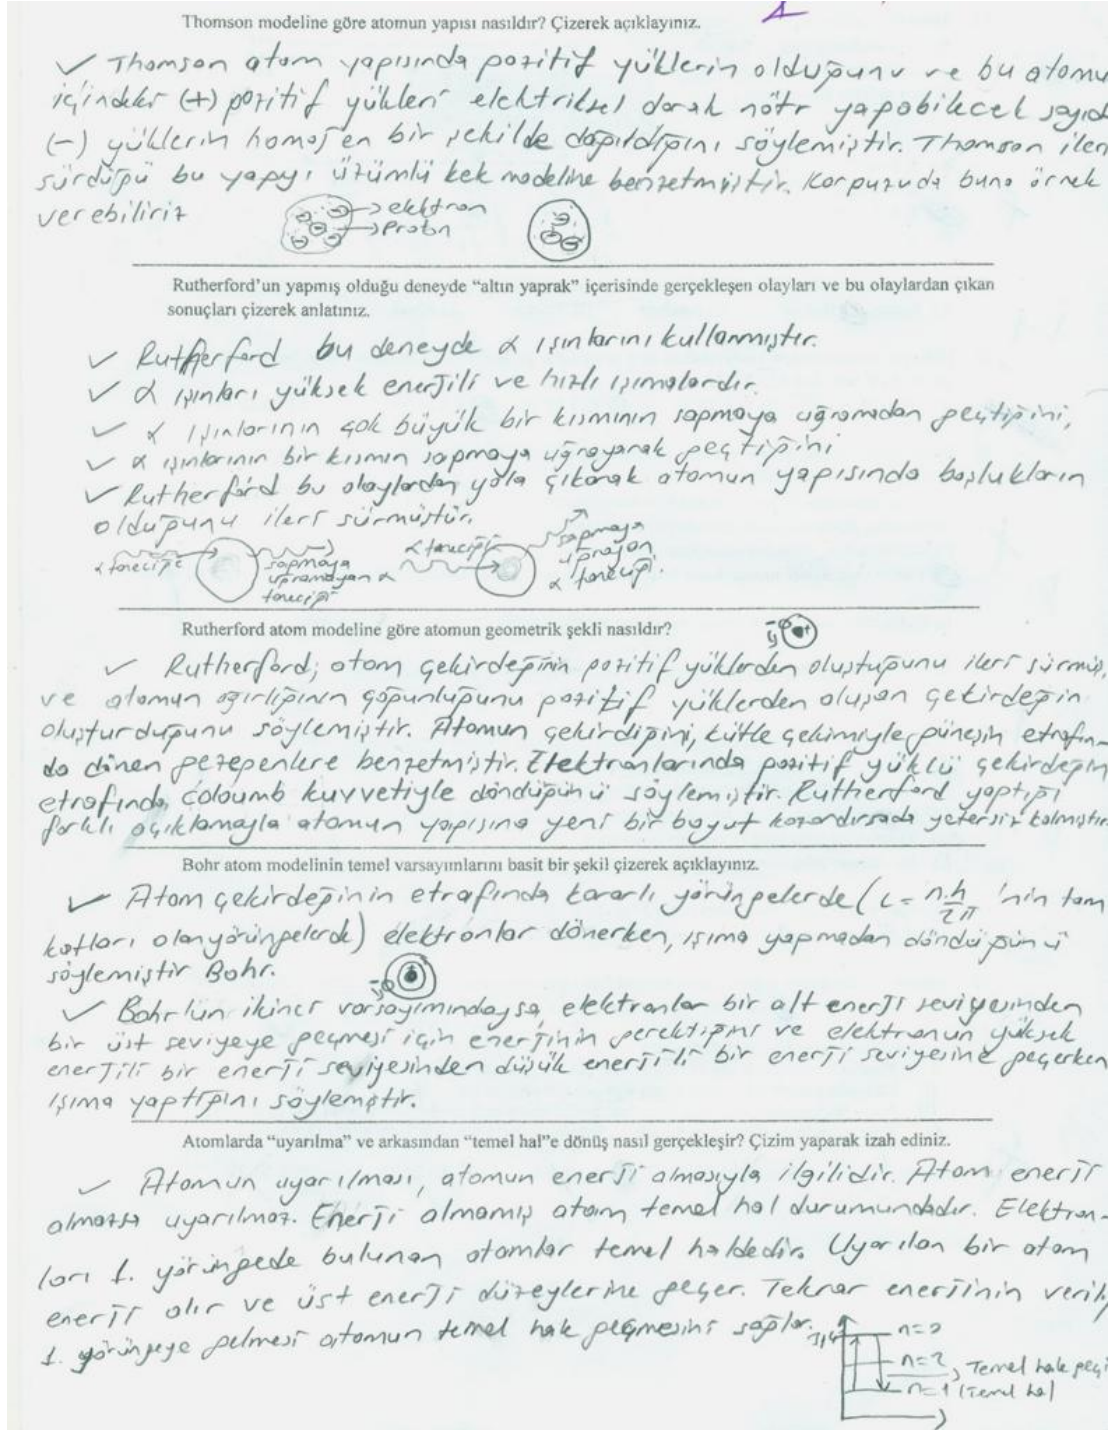 Thomson modeline göre atomun yapısı nasıldır? Çizerek açıklayınız.
✓ Thomson atom yapısında pozitif yüklerin olduğunu ve bu atomu
içindeki (+) pozitif yükleri elektriksel olarak nötr yapabilecek sayıd
(-) yüklerin homojen bir şekilde dağıldığını söylemiştir. Thomson ileri
sürdüğü bu yapıyı üzümlü kek modeline benzetmiştir. Karpuzuda buna örnek
verebiliriz
elektron
Proton
Rutherford'un yapmış olduğu deneyde “altın yaprak” içerisinde gerçekleşen olayları ve bu olaylardan çıkan
sonuçları çizerek anlatınız.
✓ Rutherford bu deneyde α ışınlarını kullanmıştır.
✓ α ışınları yüksek enerjili ve hızlı ışımalardır.
✓ α ışınlarının çok büyük bir kısmının sapmaya uğramadan geçtiğini,
✓ α ışınlarının bir kısmın sapmaya uğrayarak geçtiğini
✓ Rutherford bu olaylardan yola çıkarak atomun yapısında boşlukların
olduğunu ileri sürmüştür.
α taneciği
sapmaya
uğramayan α
taneciği
α taneciği
sapmaya
uğrayan
α taneciği.
Rutherford atom modeline göre atomun geometrik şekli nasıldır?
✓ Rutherford; atom çekirdeğinin pozitif yüklerden oluştuğunu ileri sürmüş,
ve atomun ağırlığının çoğunluğunu pozitif yüklerden oluşan çekirdeğin
oluşturduğunu söylemiştir. Atomun çekirdiğini, kütle çekimiyle güneşin etrafın-
da dönen gezegenlere benzetmiştir. Elektronlarında pozitif yüklü çekirdeğin
etrafında, coloumb kuvvetiyle döndüğünü söylemiştir. Rutherford yaptığı
farklı açıklamayla atomun yapısına yeni bir boyut kazandırsada yetersiz kalmıştır.
Bohr atom modelinin temel varsayımlarını basit bir şekil çizerek açıklayınız.
✓ Atom çekirdeğinin etrafında kararlı yörüngelerde (L = n.h/2π 'nin tam
katları olan yörüngelerde) elektronlar dönerken, ışıma yapmadan döndüğünü
söylemiştir Bohr.
✓ Bohr'un ikinci varsayımındaysa, elektronlar bir alt enerji seviyesinden
bir üst seviyeye geçmesi için enerjinin gerektiğini ve elektronun yüksek
enerjili bir enerji seviyesinden düşük enerjili bir enerji seviyesine geçerken
ışıma yaptığını söylemiştir.
Atomlarda “uyarılma” ve arkasından “temel hal”e dönüş nasıl gerçekleşir? Çizim yaparak izah ediniz.
✓ Atomun uyarılması, atomun enerji almasıyla ilgilidir. Atom enerji
almazsa uyarılmaz. Enerji almamış atom temel hal durumundadır. Elektron-
ları 1. yörüngede bulunan atomlar temel haldedir. Uyarılan bir atom
enerji alır ve üst enerji düzeylerine geçer. Tekrar enerjinin verilip
1. yörüngeye gelmesi atomun temel hale geçmesini sağlar.
n=2, Temel hale geçi
n=1 (Temel hal)